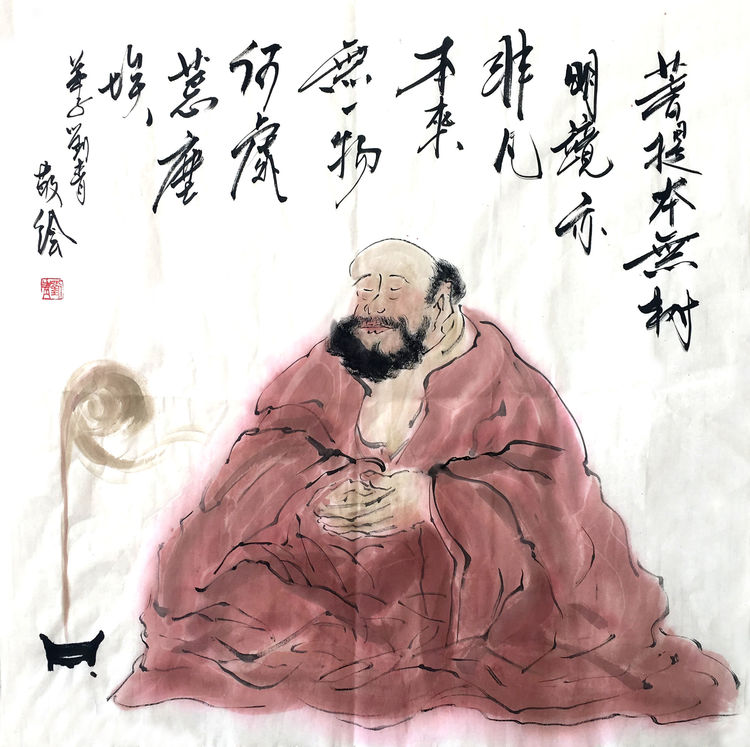 菩提本無树
明鏡亦
非凡
本來
無一物
何處
惹塵
埃、
弟子劉青
敬绘